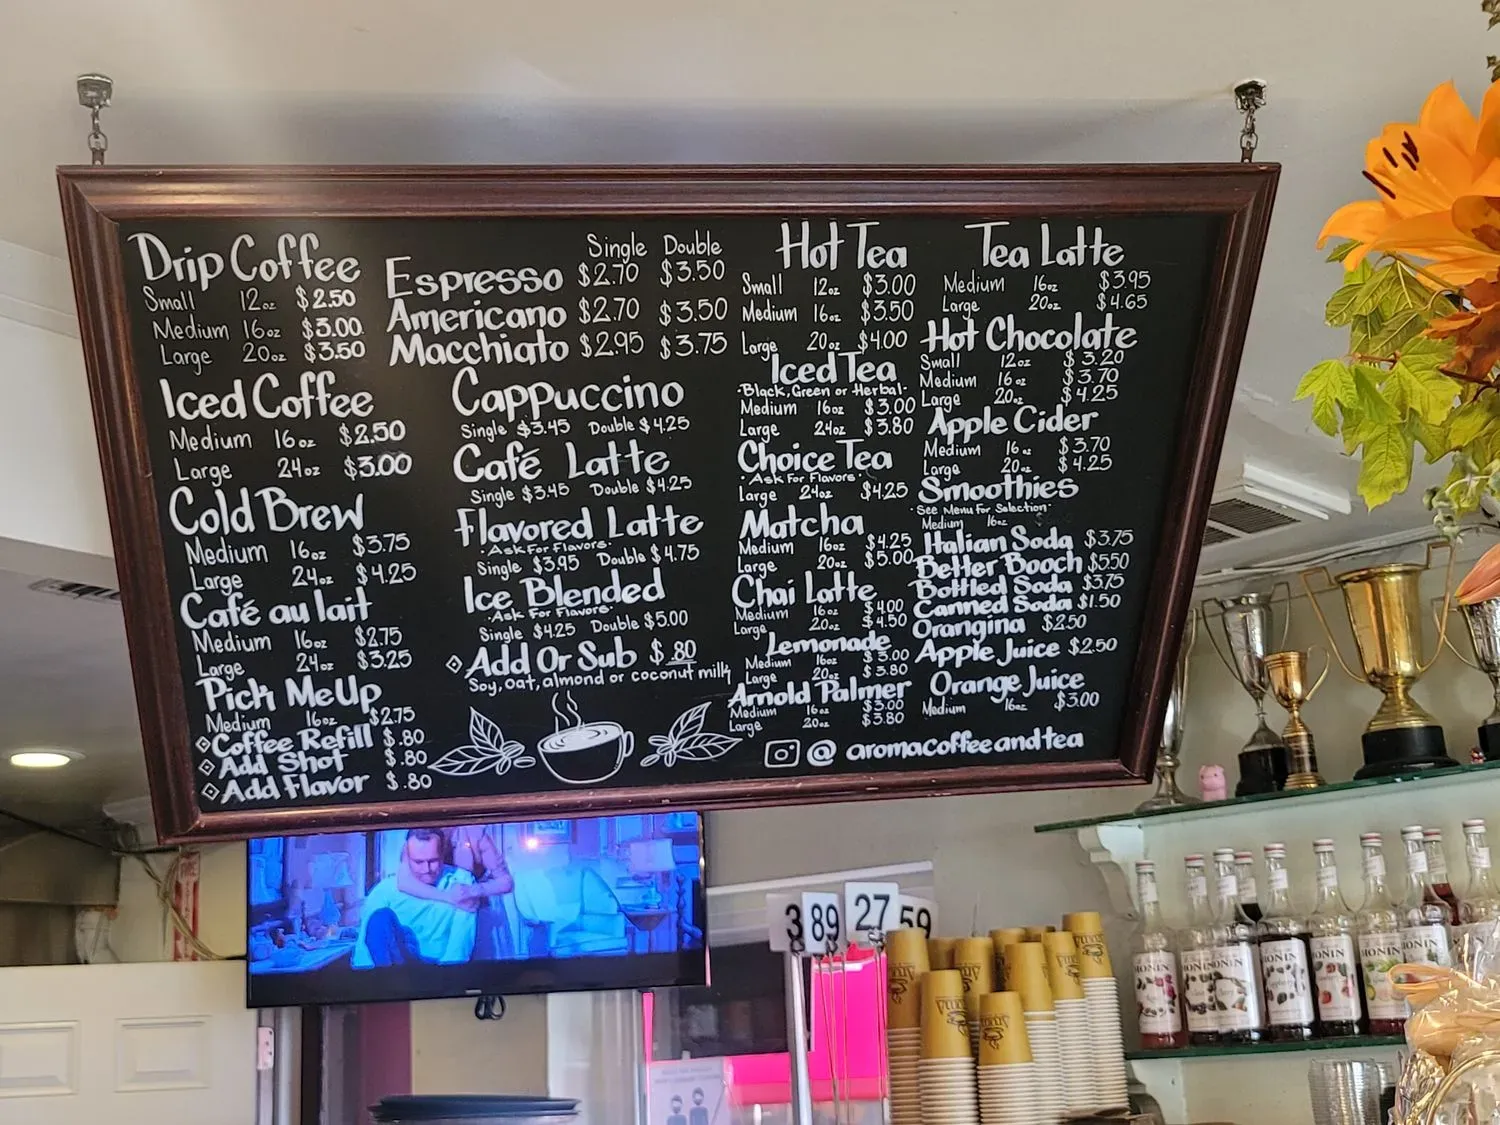 Drip Coffee
Small 12oz $2.50
Medium 16oz $3.00
Large 20oz $3.50
Iced Coffee
Medium 16oz $2.50
Large 24oz $3.00
Cold Brew
Medium 16oz $3.75
Large 24oz $4.25
Café au lait
Medium 16oz $2.75
Large 24oz $3.25
Pick Me Up
Medium 16oz $2.75
Coffee Refill $.80
Add Shot $.80
Add Flavor $.80
Single Double
Espresso $2.70 $3.50
Americano $2.70 $3.50
Macchiato $2.95 $3.75
Cappuccino
Single $3.45 Double $4.25
Café Latte
Single $3.45 Double $4.25
Flavored Latte
·Ask For Flavors·
Single $3.95 Double $4.75
Ice Blended
·Ask For Flavors·
Single $4.25 Double $5.00
Add Or Sub $.80
Soy, oat, almond or coconut milk
Hot Tea
Small 12oz $3.00
Medium 16oz $3.50
Large 20oz $4.00
Iced Tea
·Black, Green or Herbal·
Medium 16oz $3.00
Large 24oz $3.80
Choice Tea
·Ask For Flavors·
Large 24oz $4.25
Matcha
Medium 16oz $4.25
Large 20oz $5.00
Chai Latte
Medium 16oz $4.00
Large 20oz $4.50
Lemonade
Medium 16oz $3.00
Large 20oz $3.80
Arnold Palmer
Medium 16oz $3.00
Large 20oz $3.80
Tea Latte
Medium 16oz $3.95
Large 20oz $4.65
Hot Chocolate
Small 12oz $3.20
Medium 16oz $3.70
Large 20oz $4.25
Apple Cider
Medium 16oz $3.70
Large 20oz $4.25
Smoothies
·See Menu for Selection·
Medium 16oz $
Italian Soda $3.75
Better Booch $5.50
Bottled Soda $3.75
Canned Soda $1.50
Orangina $2.50
Apple Juice $2.50
Orange Juice
Medium 16oz $3.00
@ aromacoffeeandtea
3
89
27
59
MONIN
MONIN
MONIN
MONIN
MONIN
MONIN
MONIN